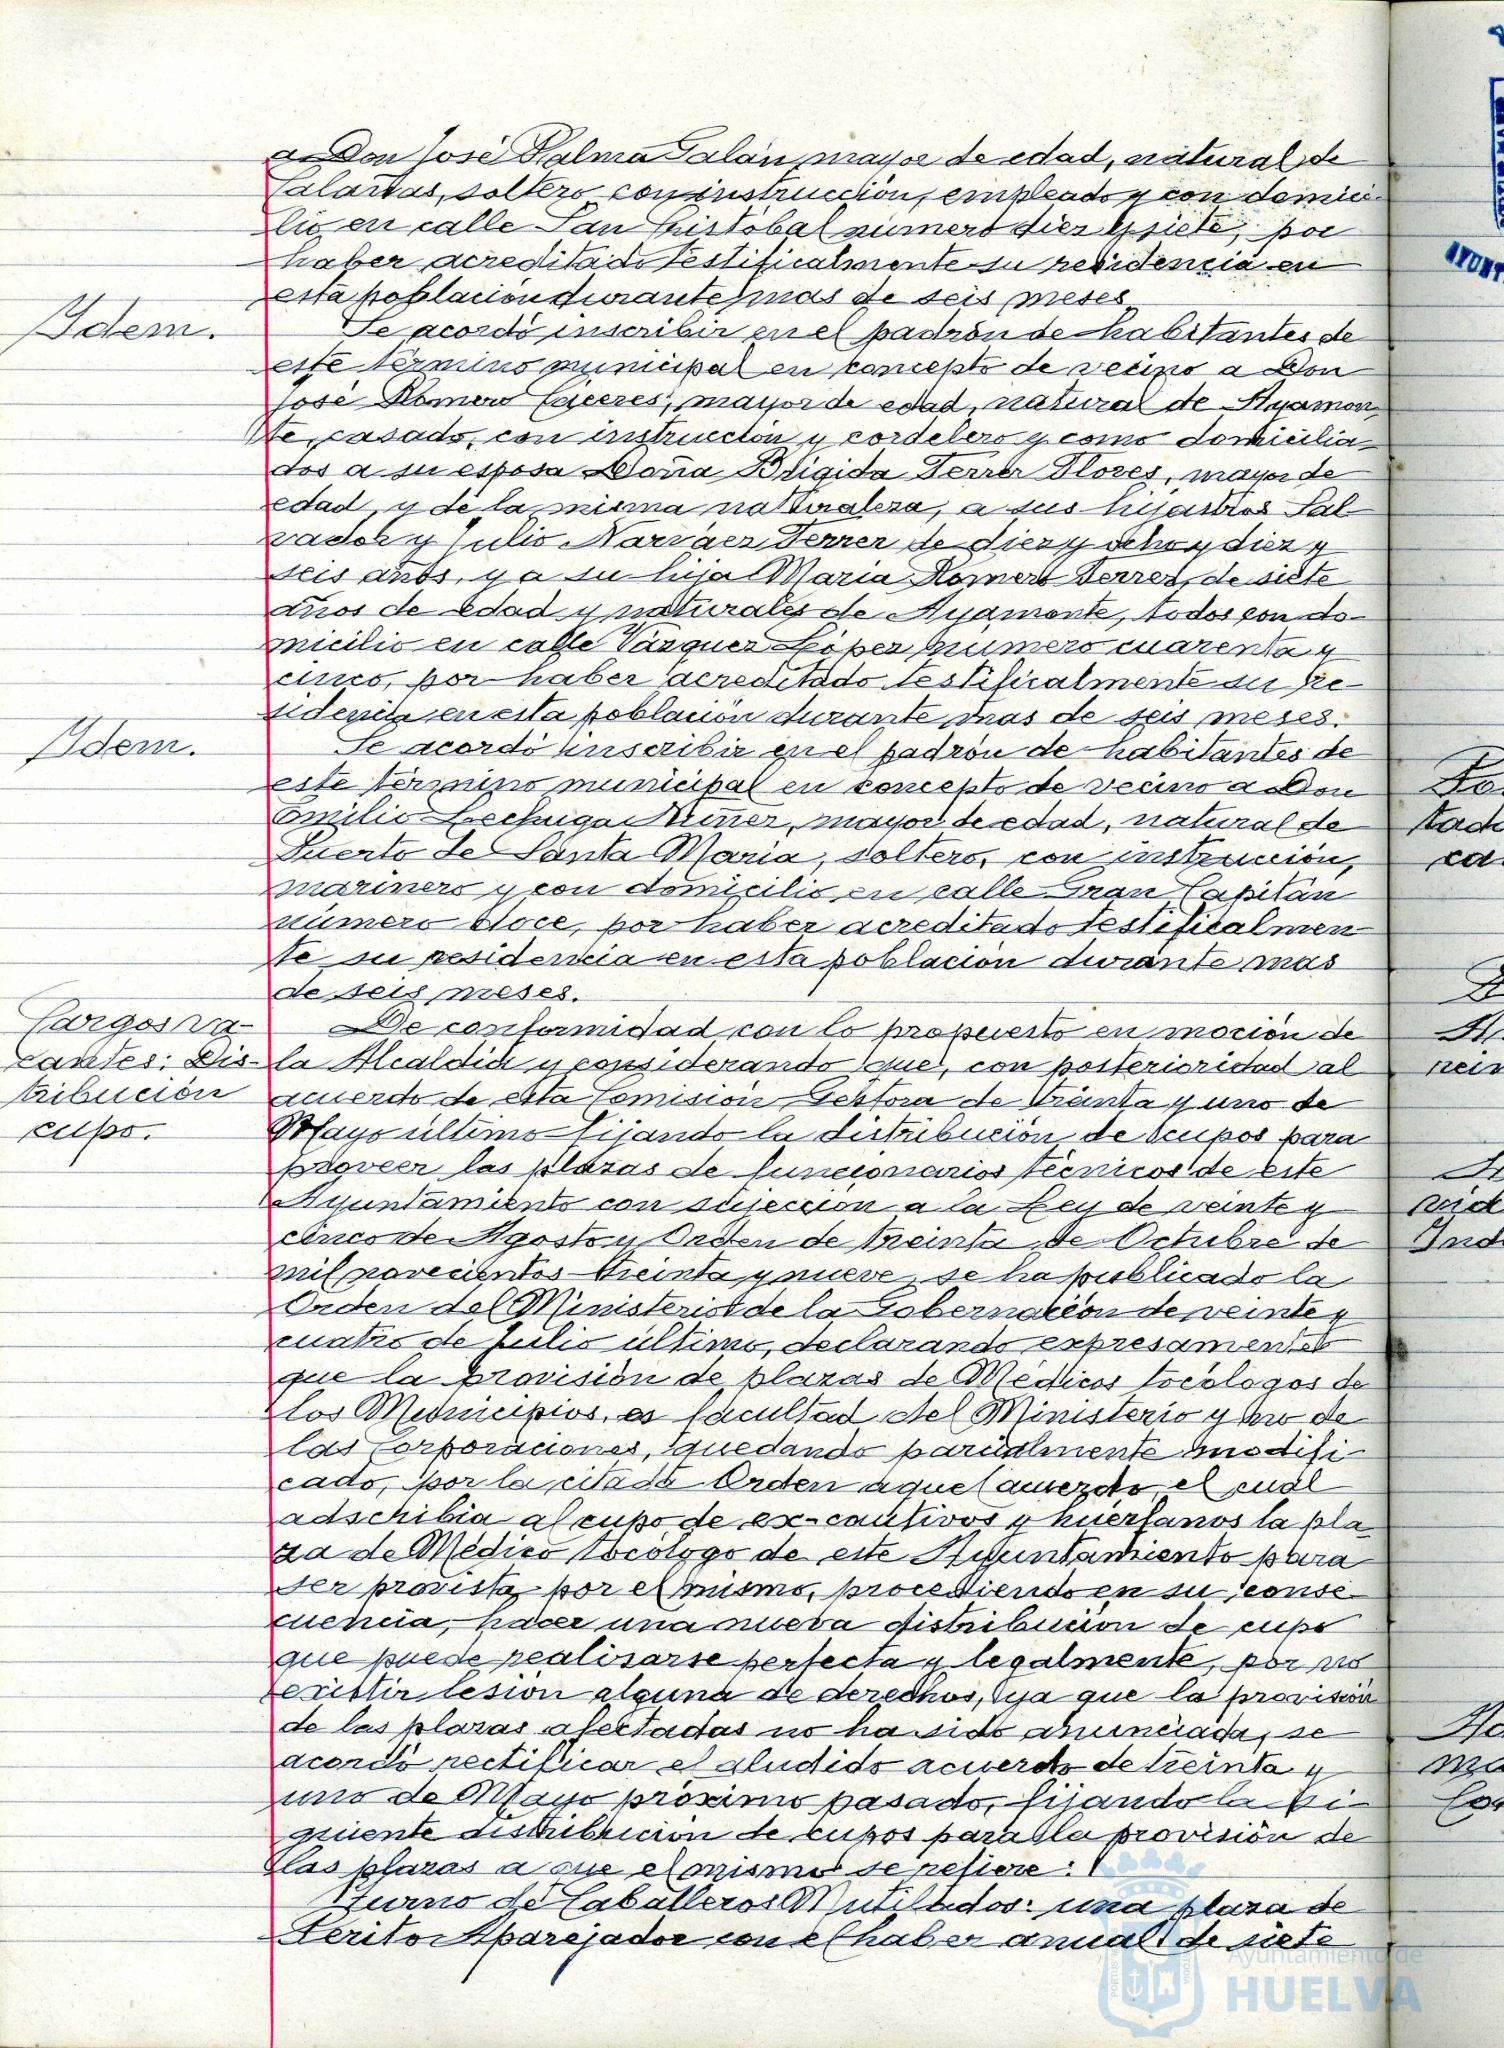 a Don José Palma Galán, mayor de edad, natural de
Calañas, soltero, con instrucción, empleado y con domici-
lio en calle San Cristóbal número diez y siete, por
haber acreditado testificalmente su residencia en
esta población durante mas de seis meses
Idem.
Se acordó inscribir en el padrón de habitantes de
este término municipal en concepto de vecino a Don
José Romero Cáceres, mayor de edad, natural de Ayamon-
te, casado, con instrucción y cordelero y como domicilia-
dos a su esposa Doña Brigida Ferrer Flores, mayor de
edad, y de la misma naturaleza, a sus hijastros Sal-
vador y Julio Narváez Ferrer de diez y ocho y diez y
seis años, y a su hija Maria Romero Ferrer, de siete
años de edad y naturales de Ayamonte, todos con do-
micilio en calle Vázquez López número cuarenta y
cinco, por haber acreditado testificalmente su re-
sidencia en esta población durante mas de seis meses.
Idem.
Se acordó inscribir en el padrón de habitantes de
este término municipal en concepto de vecino a Don
Emilio Lechuga Núñez, mayor de edad, natural de
Puerto de Santa Maria, soltero, con instrucción,
marinero y con domicilio en calle Gran Capitán
número doce, por haber acreditado testificalmen
te su residencia en esta población durante mas
de seis meses.
Cargos va-
cantes: Dis-
tribución
cupo.
De conformidad con lo propuesto en moción de
la Alcaldia y considerando que, con posterioridad al
acuerdo de esta Comisión Gestora de treinta y uno de
Mayo último fijando la distribución de cupos para
proveer las plazas de funcionarios técnicos de este
Ayuntamiento con sujección a la Ley de veinte y
cinco de Agosto y Orden de treinta de Octubre de
mil novecientos treinta y nueve, se ha publicado la
Orden del Ministerio de la Gobernación de veinte y
cuatro de Julio último, declarando expresamente
que la provisión de plazas de Médicos tocólogos de
los Municipios, es facultad del Ministerio y no de
las Corporaciones, quedando parcialmente modifi-
cado, por la citada Orden aquel acuerdo el cual
adschibia al cupo de ex-cautivos y huérfanos la pla
za de Médico tocólogo de este Ayuntamiento para
ser provista por el mismo, procediendo en su conse-
cuencia, hacer una nueva distribución de cupo
que puede realizarse perfecta y legalmente, por no
existir lesión alguna de derechos, ya que la provisión
de las plazas afectadas no ha sido anunciada, se
acordó rectificar el aludido acuerdo de treinta y
uno de Mayo próximo pasado, fijando la si-
guiente distribución de cupos para la provisión de
las plazas a que el mismo se refiere:
Turno de Caballeros Mutilados: una plaza de
Perito Aparejador con el haber anual de siete
Ayuntamiento de
HUELVA